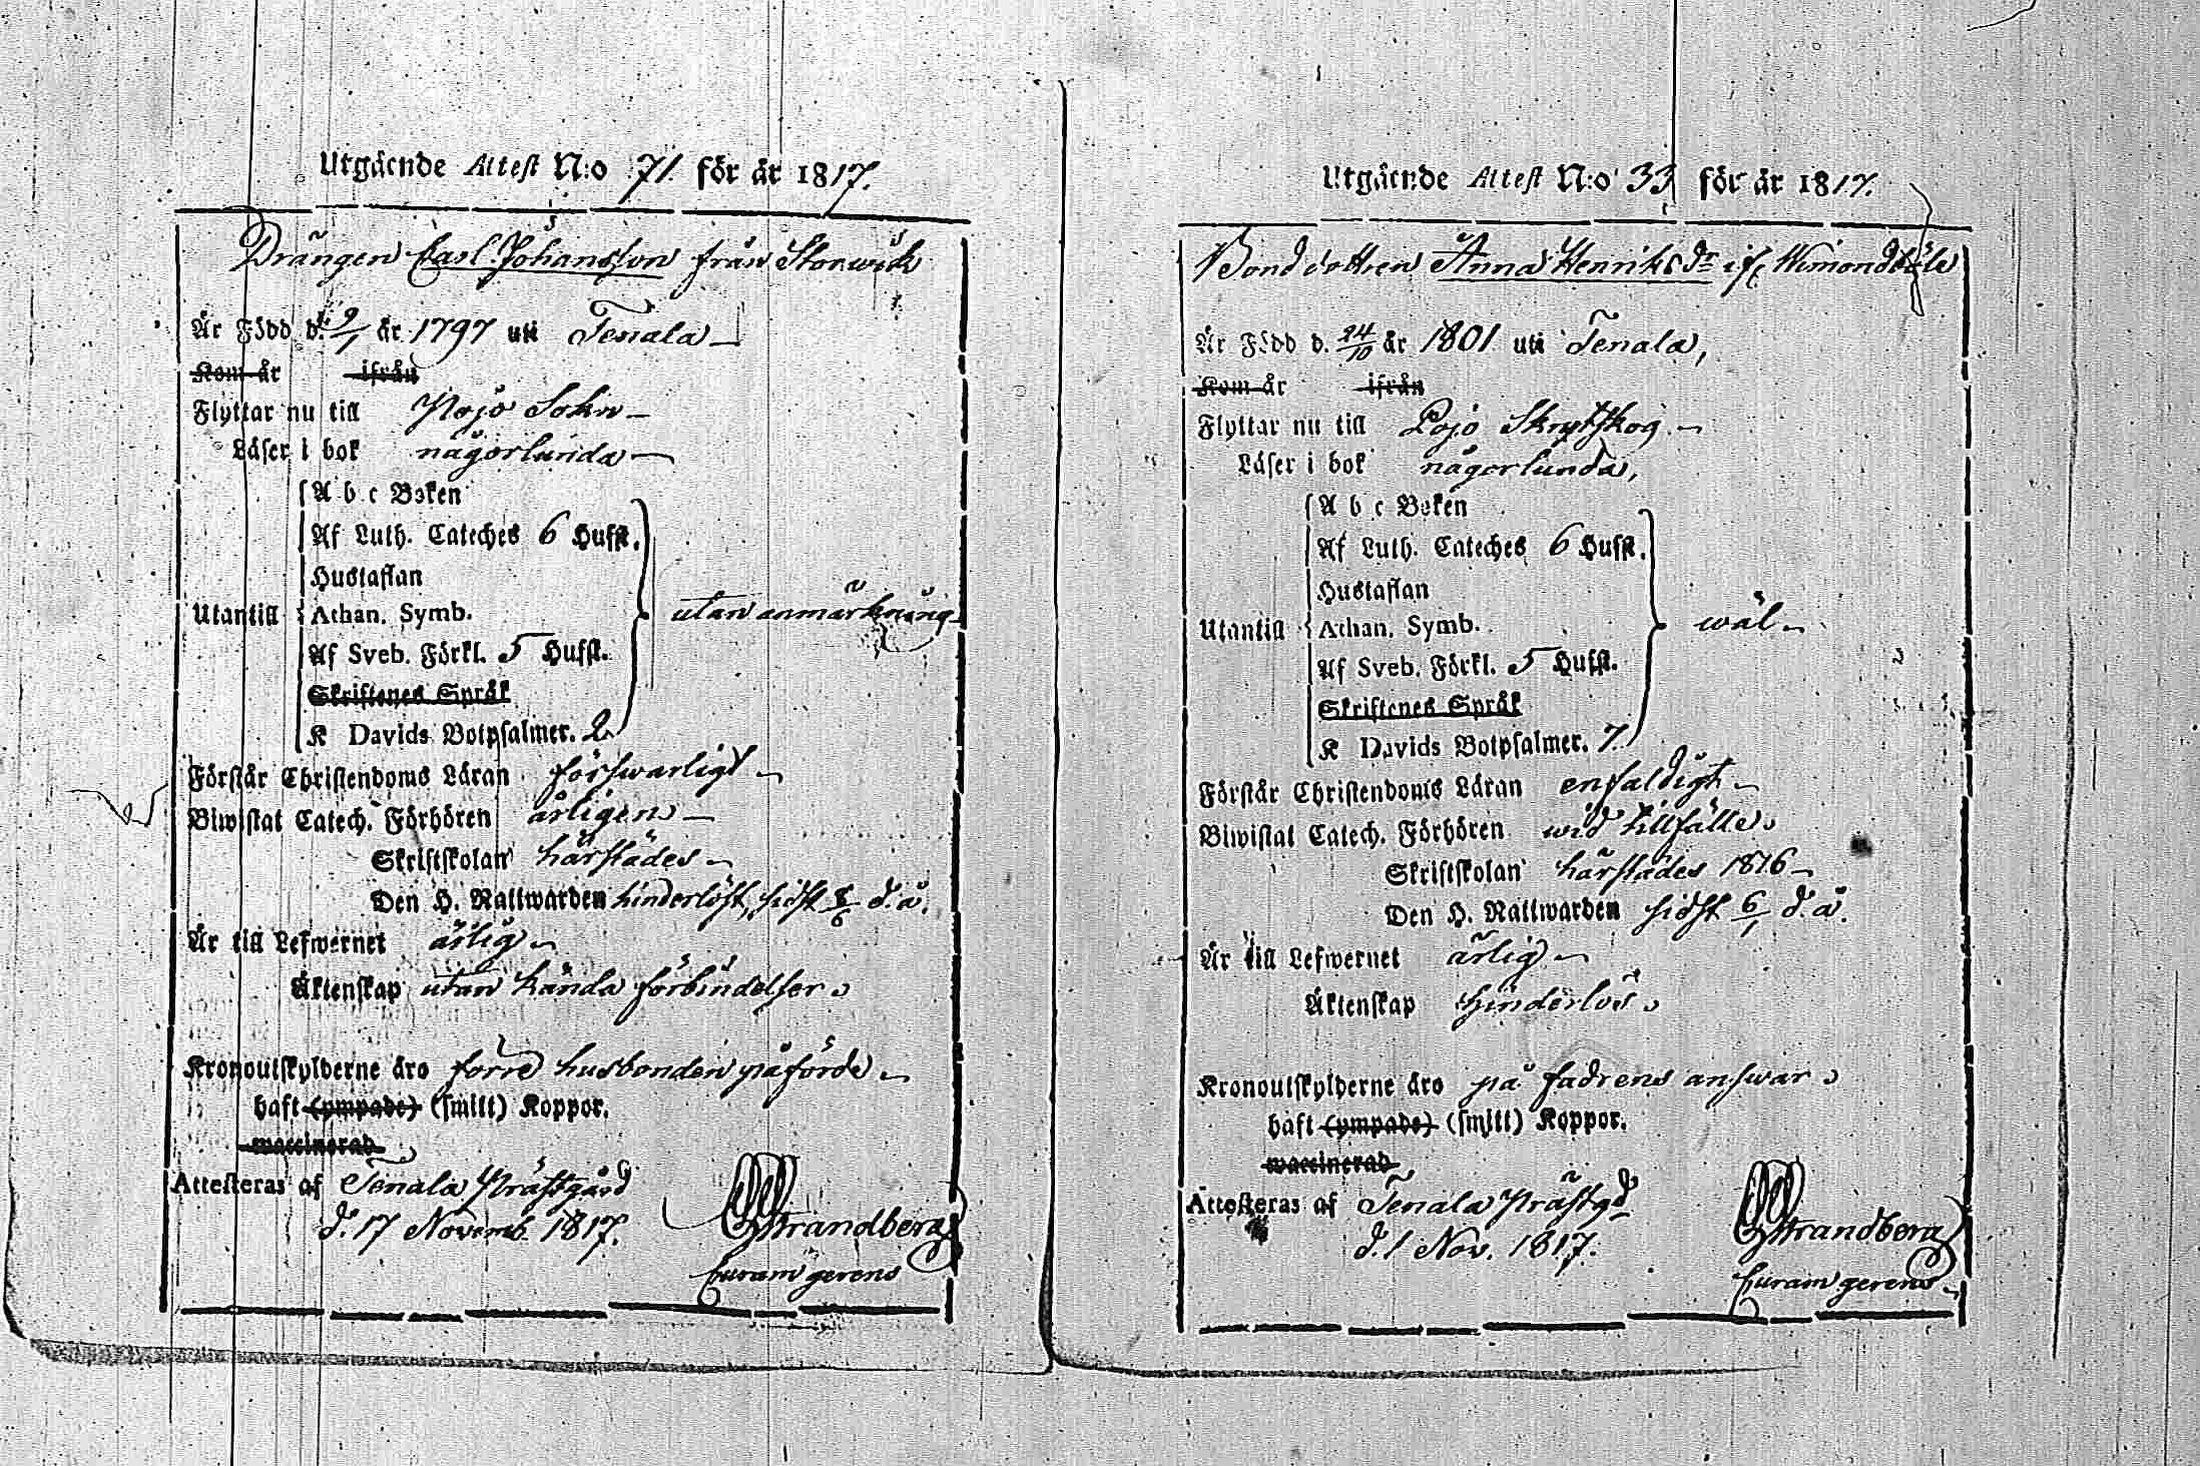 Utgående Attest N:o 71 för år 1817.
Drängen Carl Johansson från Storwik
Är Född d. 9/1 år 1797 uti Tenala
Kom år ifrån
Flyttar nu till Pojo Sokn
Läser i bok någorlunda
A b c Boken
Af Luth. Cateches 6 Hufst.
Hustaflan
Utantill Athan. Symb. utan anmärkning
Af Sveb. Förkl. 5 Hufst.
Skriftenes Språk
K Davids Botpsalmer. 2
Förstår Christendoms Läran förswarligt
Biwistat Catech. Förhören årligen
Skriftskolan härstädes
Den H. Nattwarden hinderlöst, sidst d. å.
Är till Lefwernet ärlig
Äktenskap utan kända förbindelser
Kronoutskylderne äro förre husbonden påförde
haft (ympade) (smitt) Koppor.
waccinerad
Attesteras af Tenala Prästgård
d. 17 Novemb. 1817.
Strandberg
Curam gerens
Utgående Attest N:o 33 för år 1817.
Bonddottren Anna Henriks dr if.
Är Född d. 24/10 år 1801 uti Tenala,
Kom år ifrån
Flyttar nu till Pojo Skrytskog
Läser i bok någorlunda,
A b c Boken
Af Luth. Cateches 6 Hufst.
Hustaflan
Utantill Athan. Symb. wäl
Af Sveb. Förkl. 5 Hufst.
Skriftenes Språk
K Davids Botpsalmer. 7
Förstår Christendoms Läran enfaldigt
Biwistat Catech. Förhören wid tillfälle
Skriftskolan härstädes 1816
Den H. Nattwarden sidst 6/1 d. å.
Är till Lefwernet ärlig
Äktenskap hinderlös
Kronoutskylderne äro på fadrens answar
haft (ympade) (smitt) Koppor.
waccinerad
Attesteras af Tenala Prästgd
d. 1 Nov. 1817.
Strandberg
Curam gerens